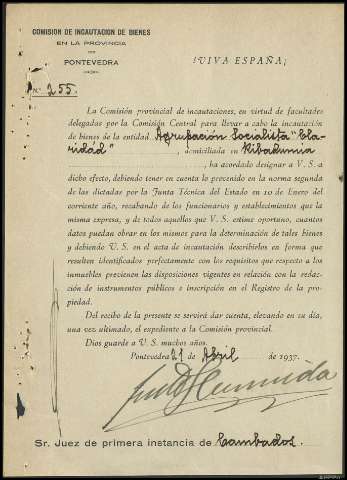 COMISIÓN DE INCAUTACIÓN DE BIENES
EN LA PROVINCIA
DE
PONTEVEDRA
¡VIVA ESPAÑA!
N.º 255.
La Comisión provincial de incautaciones, en virtud de facultades
delegadas por la Comisión Central para llevar a cabo la incautación
de bienes de la entidad Agrupación Socialista "Cla-
ridad", domiciliada en Ribadumia
, ha acordado designar a V. S. a
dicho efecto, debiendo tener en cuenta lo prevenido en la norma segunda
de las dictadas por la Junta Técnica del Estado en 10 de Enero del
corriente año, recabando de los funcionarios y establecimientos que la
misma expresa, y de todos aquellos que V. S. estime oportuno, cuantos
datos puedan obrar en los mismos para la determinación de tales bienes
y debiendo U. S. en el acta de incautación describirlos en forma que
resulten identificados perfectamente con los requisitos que respecto a los
inmuebles previenen las disposiciones vigentes en relación con la redac-
ción de instrumentos públicos e inscripción en el Registro de la pro-
piedad.
Del recibo de la presente se servirá dar cuenta, elevando en su día,
una vez ultimado, el expediente a la Comisión provincial.
Dios guarde a V. S. muchos años.
Pontevedra 21 de Abril de 1937.
Sr. Juez de primera instancia de Cambados.